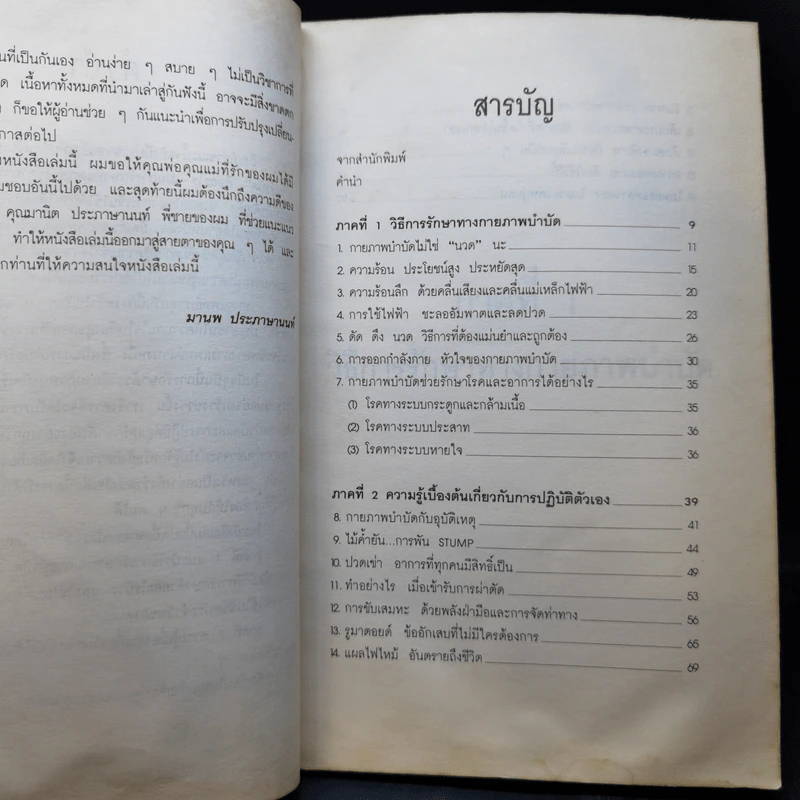 นที่เป็นกันเอง อ่านง่าย ๆ สบาย ๆ ไม่เป็นวิชาการที่
ด เนื้อหาทั้งหมดที่นำมาเล่าสู่กันฟังนี้ อาจจะมีสิ่งขาดตก
ก็ขอให้ผู้อ่านช่วย ๆ กันแนะนำเพื่อการปรับปรุงเปลี่ยน-
กาสต่อไป
หนังสือเล่มนี้ ผมขอให้คุณพ่อคุณแม่ที่รักของผมได้มี
มชอบอันนี้ไปด้วย และสุดท้ายนี้ผมต้องนึกถึงความดีของ
คุณมานิต ประภาษานนท์ พี่ชายของผม ที่ช่วยแนะแนว
ทำให้หนังสือเล่มนี้ออกมาสู่สายตาของคุณ ๆ ได้ และ
กท่านที่ให้ความสนใจหนังสือเล่มนี้
มานพ ประภาษานนท์
สารบัญ
จากสำนักพิมพ์
คำนำ
ภาคที่ 1 วิธีการรักษาทางกายภาพบำบัด 9
1. กายภาพบำบัดไม่ใช่ “นวด” นะ 11
2. ความร้อน ประโยชน์สูง ประหยัดสุด 15
3. ความร้อนลึก ด้วยคลื่นเสียงและคลื่นแม่เหล็กไฟฟ้า 20
4. การใช้ไฟฟ้า ชะลออัมพาตและลดปวด 23
5. ดัด ดึง นวด วิธีการที่ต้องแม่นยำและถูกต้อง 26
6. การออกกำลังกาย หัวใจของกายภาพบำบัด 30
7. กายภาพบำบัดช่วยรักษาโรคและอาการได้อย่างไร 35
(1) โรคทางระบบกระดูกและกล้ามเนื้อ 35
(2) โรคทางระบบประสาท 36
(3) โรคทางระบบหายใจ 36
ภาคที่ 2 ความรู้เบื้องต้นเกี่ยวกับการปฏิบัติตัวเอง 39
8. กายภาพบำบัดกับอุบัติเหตุ 41
9. ไม้ค้ำยัน...การพัน STUMP 44
10. ปวดเข่า อาการที่ทุกคนมีสิทธิ์เป็น 49
11. ทำอย่างไร เมื่อเข้ารับการผ่าตัด 53
12. การขับเสมหะ ด้วยพลังฝ่ามือและการจัดท่าทาง 56
13. รูมาตอยด์ ข้ออักเสบที่ไม่มีใครต้องการ 65
14. แผลไฟไหม้ อันตรายถึงชีวิต 69